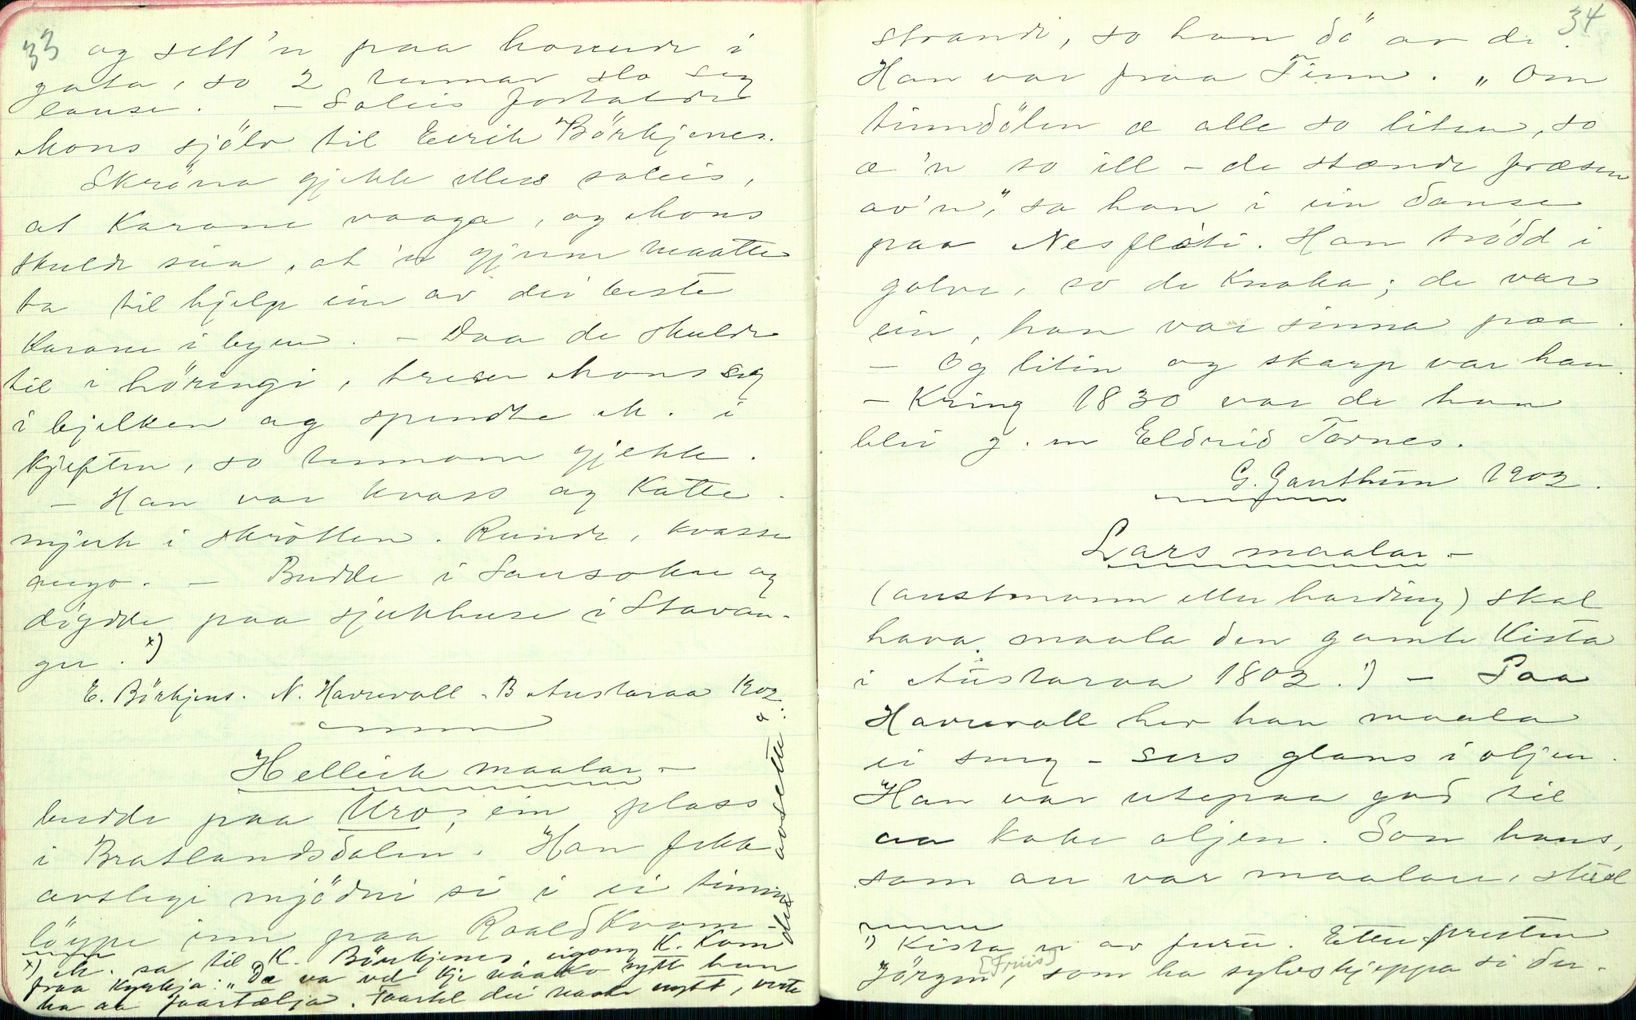 33
og sett'n paa hovude i
gata, so 2 tennar slo seg
lause. – Soleis fortalde
Mons sjölv til Eirik Börkjenes.
Skröna gjekk elles soleis,
at Karane vaaga, og Mons
skulde sia, at 'n gjenne maatte
ta til hjelp ein av dei beste
Karane i byen. – Daa de skulde
til i höringi, treiv Mons seg
i bjelken og spendte M. i
kjeften, so tennane gjekk.
– Han var kvass og Katte-
mjuk i skrotten. Runde, kvasse
augo. – Budde i Sausokn og
döydde paa sjukhuse i Stavan-
ger. x)
E. Börkjenes. N. Havrevoll. B Austaraa 1902.
Helleik maalar –
budde paa Uro, ein plass
i Bratlandsdalen. Han fekk
avslegi mjödmi si i ei timme
löype inn paa Roaldkvam-
x) M. sa til K. Börkjenes, eigong K. kom
fraa Kyrkja: "De va vel kje naako nytt han
ha aa faartelja. Faartel dei naake nytt, vete
dei avsette.
34
strandi, so han dö av di.
Han var fraa Tinn. "Om
tinndölen æ alle so liten, so
æ 'n so ill – de stænde fræsen
av'n," sa han i ein danse
paa Nesflöti. Han trödd i
golve, so de knaka; de var
ein, han var sinna paa.
– Og litin og skarp var han.
– Kring 1830 var de han
blei g. m Eldrid Tornes.
G. Gauthun 1902.
Lars maalar –
(austmann eller harding) skal
hava maala den gamle Kista
i Austaraa 1802. 1) – Paa
Havrevoll hev han maala
ei seng – sers glans i oljen.
Han var utepaa god til
aa koke oljen. Son hans,
som au var maalar, stod
1) Kista er av furu. Etter presten
Jörgen [Friis], som ha sylvskjeppa si der.